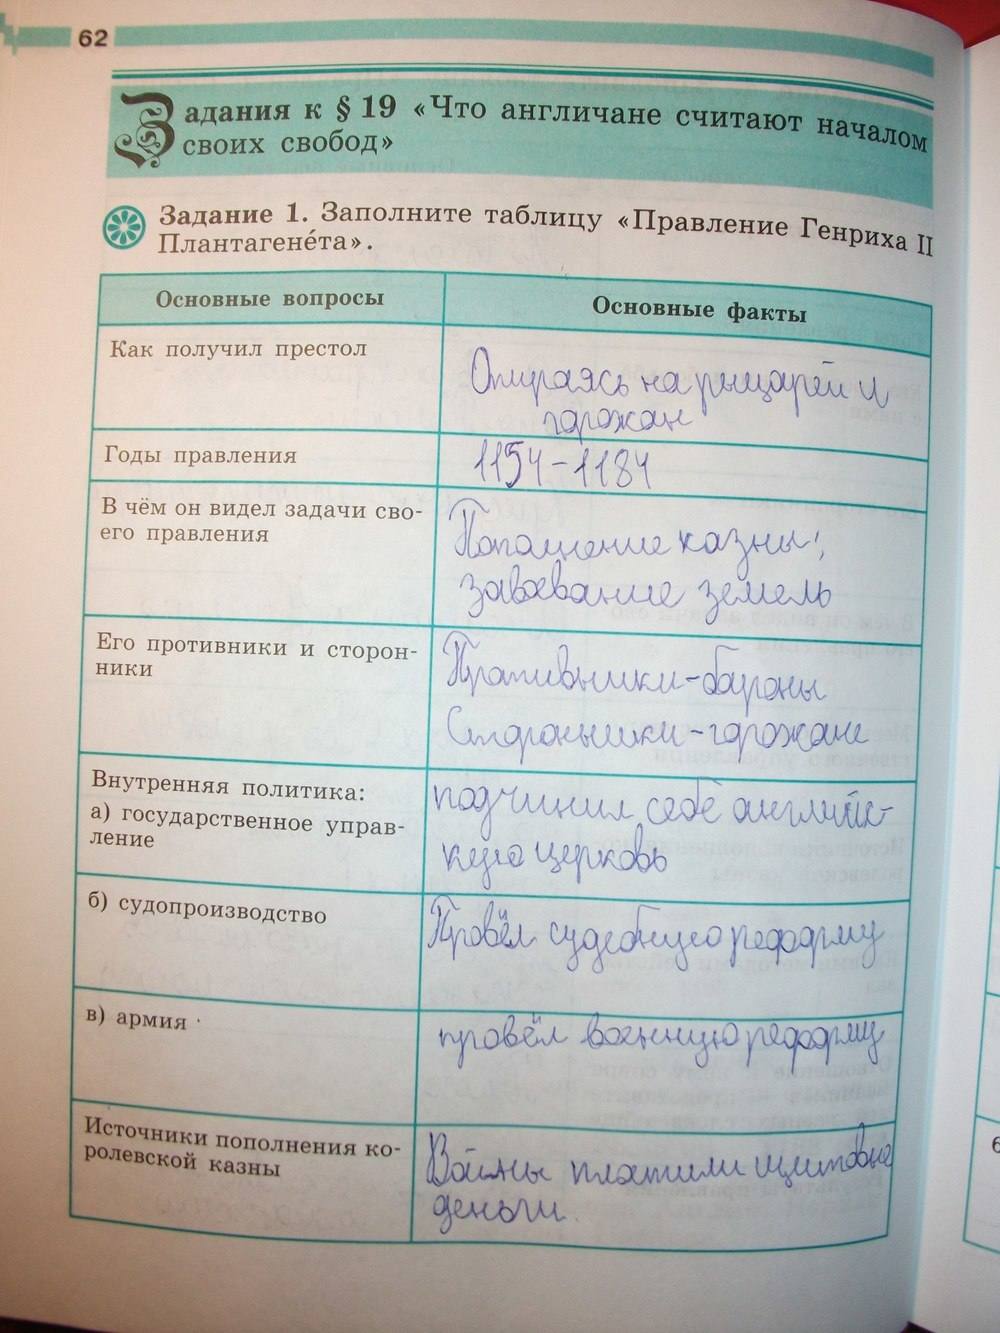 62
Задания к § 19 «Что англичане считают началом
своих свобод»
Задание 1. Заполните таблицу «Правление Генриха II
Плантагене́та».
Основные вопросы
Основные факты
Как получил престол
Опираясь на рыцарей и
горожан
Годы правления
1154-1184
В чём он видел задачи сво-
его правления
Попошнение казны;
завоевание земель
Его противники и сторон-
ники
Противники-бароны
Сторонники-горожане
Внутренняя политика:
а) государственное управ-
ление
подчинил себе английс-
кую церковь
б) судопроизводство
Провёл судебную реформу
в) армия
провёл военную реформу
Источники пополнения ко-
ролевской казны
Войны платили щитовые
деньги.
6